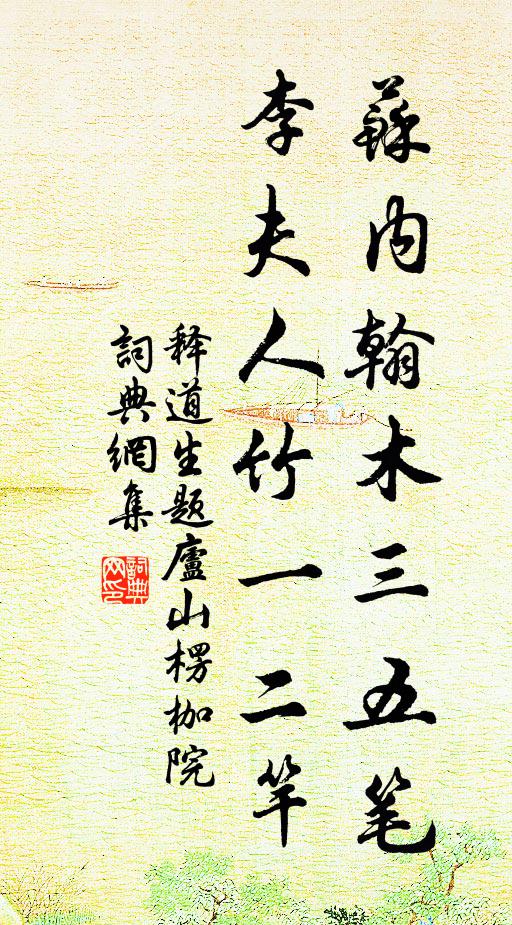 蘇内翰木三五笔
李夫人竹一二竿
释道生题廬山楞枷院
詞典網集
詞典网印